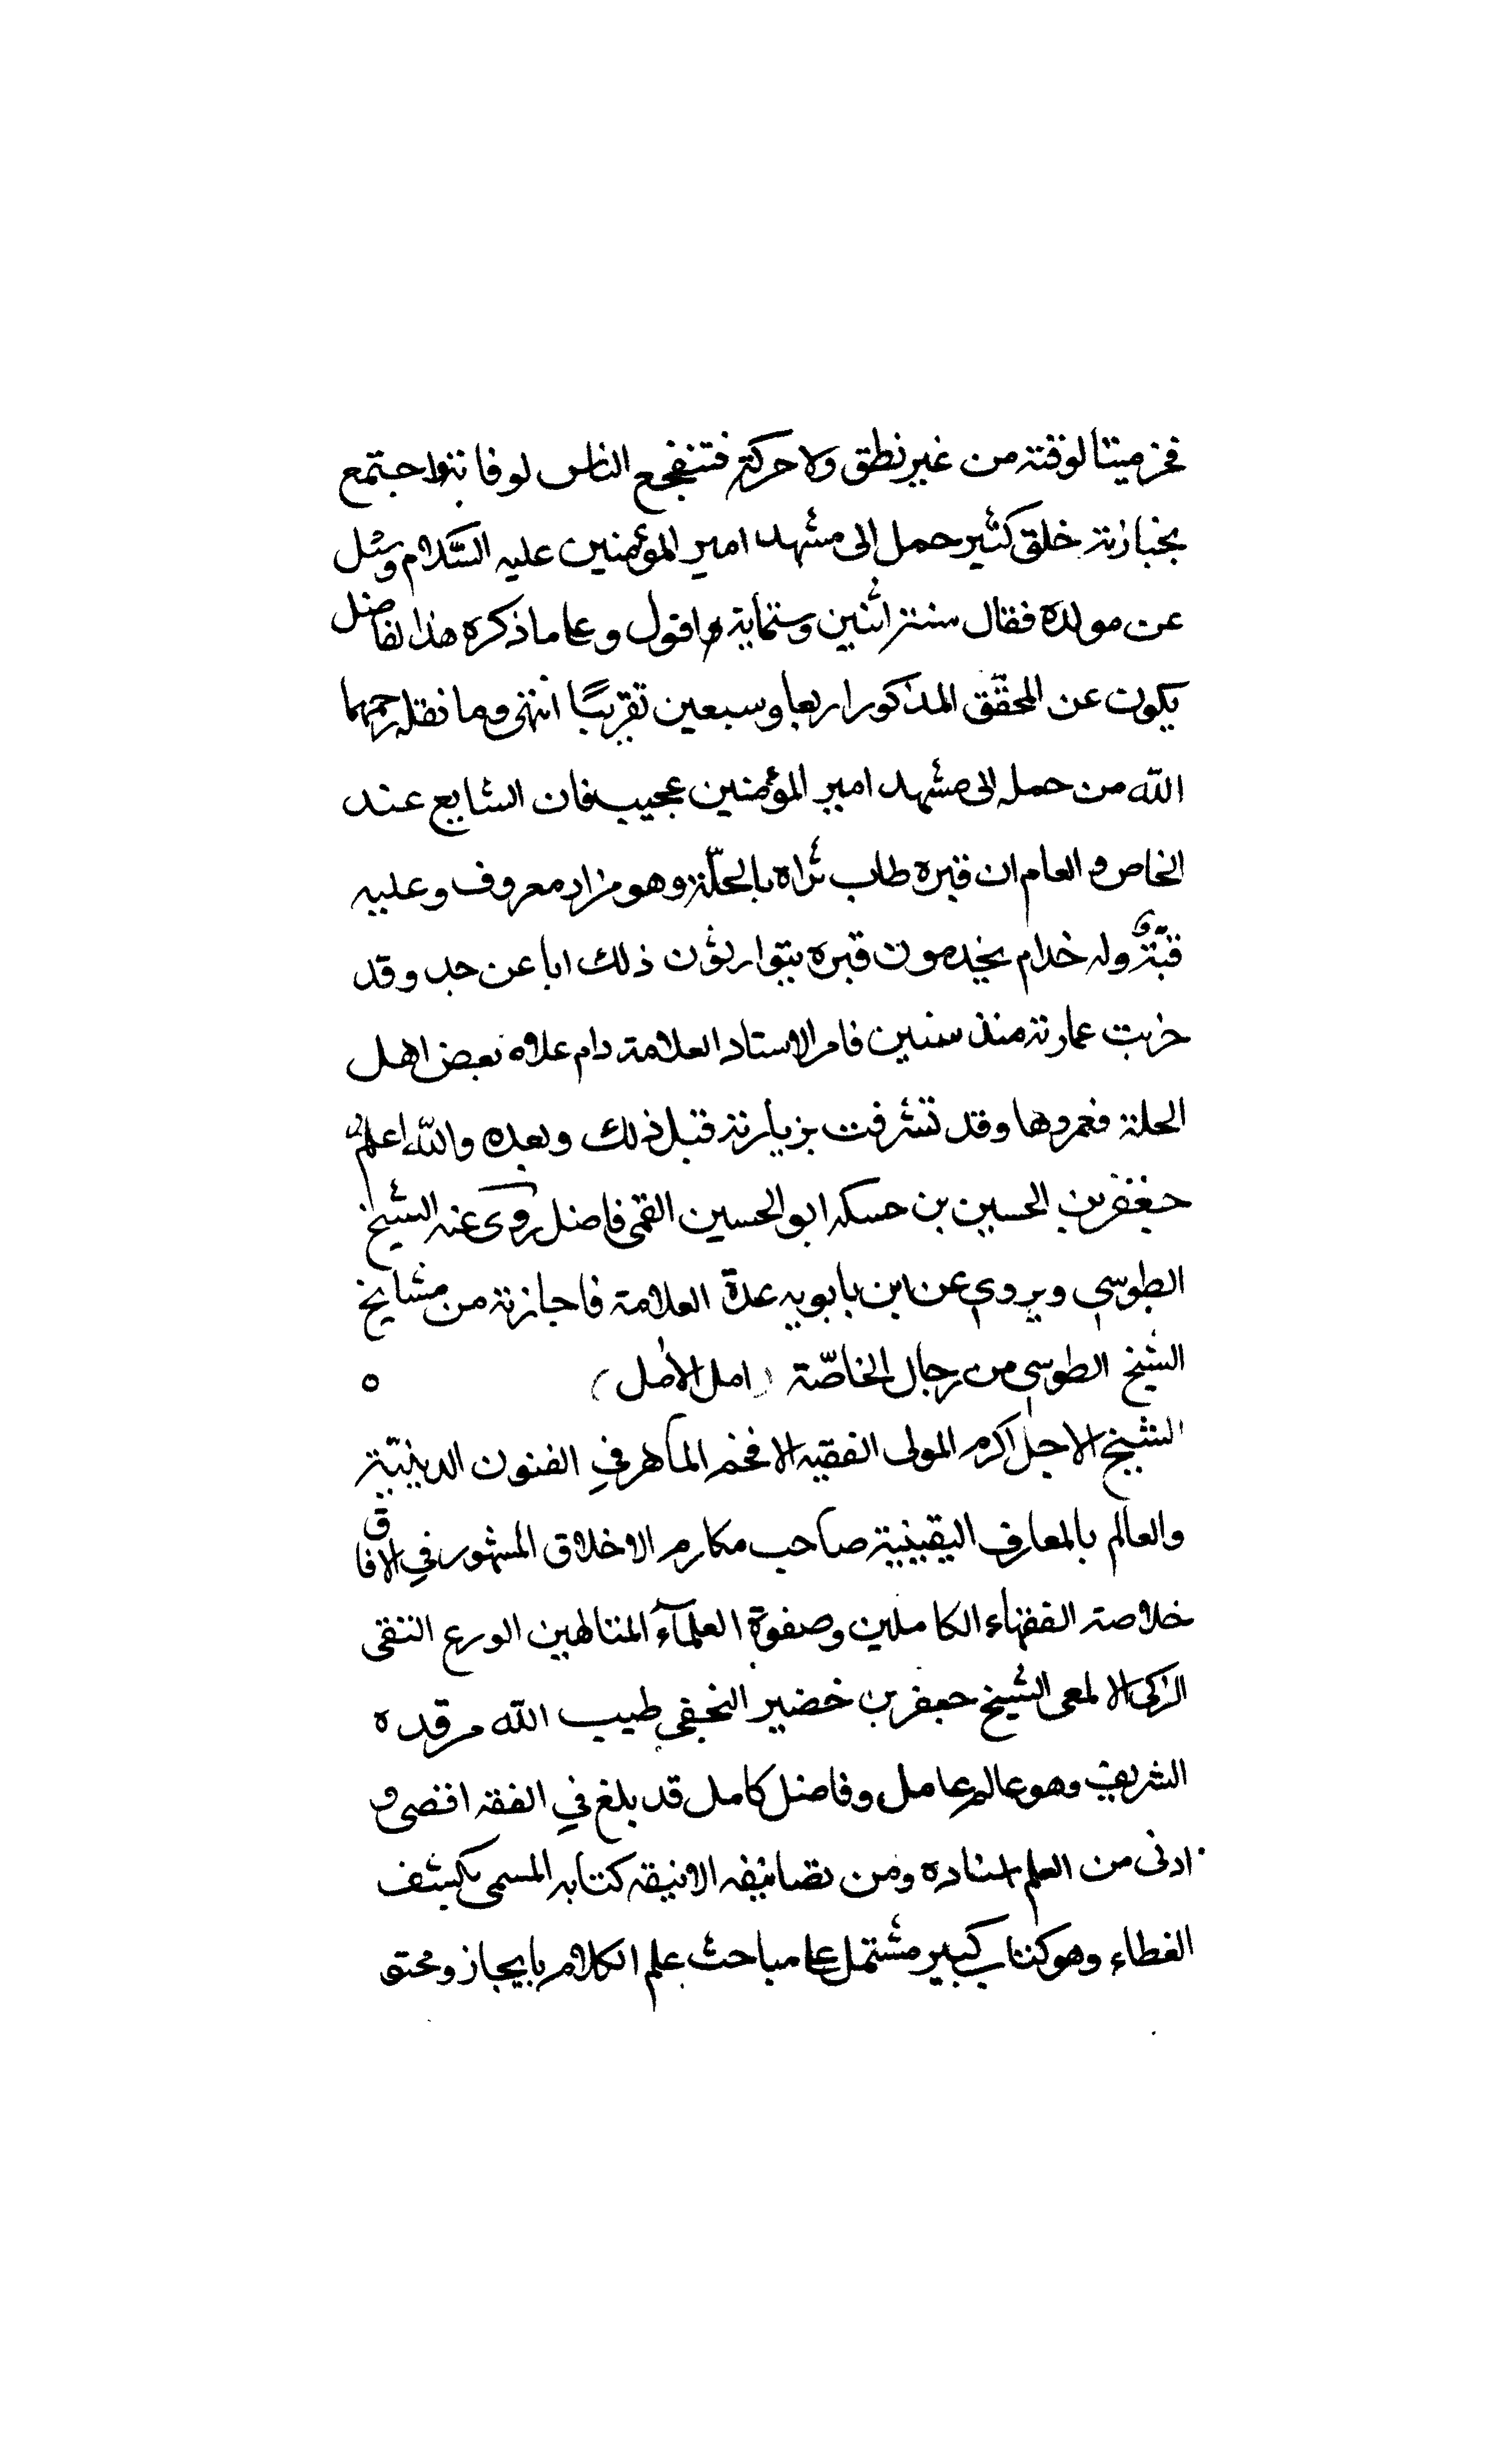 فخر ميتا لوقته من غير نطق ولا حركة فتفجع الناس لوفاته واجتمع
بجنازته خلق كثير حمل الى مشهد امير المؤمنين عليه السّلام وسئل
عن مولده فقال سنة اثنين وستماية و اقول وعلى ما ذكره هذا الفاضل
يكون عن المحقّق المذكور اربعا وسبعين تقريبًا انتهى وما نقله رحمهما
اللّه من حمله الى مشهد امير المؤمنين عجيب فان الشايع عند
الخاص و العام ان قبره طاب ثراه بالحلّة وهو مزار معروف وعليه
قبّة وله خدام يخدمون قبره يتوارثون ذلك ابا عن جد وقد
خربت عمارته منذ سنين فامر الاستاد العلامة دام علاه بعض اهل
الحلة فعمروها وقد تشرفت بزيارته قبل ذلك وبعده واللّه اعلم
جعفر بن الحسين بن حسكه ابو الحسين القمى فاضل روى عنه الشيخ
الطوسي ويروي عن ابن بابويه عدة العلامة فاجازته من مشايخ
الشيخ الطوسي من رجال الخاصّة (امل الأمل) ه
الشيخ الاجل اكرم المولى الفقيه الافخم الماهر في الفنون الدينيّة
والعالم بالمعارف اليقينية صاحب مكارم الاخلاق المشهور في الافاق
خلاصة الفقهاء الكاملين وصفوة العلمآء المتالهين الورع التقى
الزكى الالمعى الشيخ جعفر بن خضير النجفي طيب اللّه مرقده
الشريف وهو عالم عامل وفاضل كامل قد بلغ في الفقه اقصى و
ادنى من العلم اسناده ومن تصانيفه الانيقة كتابه المسمى بكشف
الغطاء وهو كتاب كبير مشتمل على مباحث علم الكلام بايجاز ومحتو